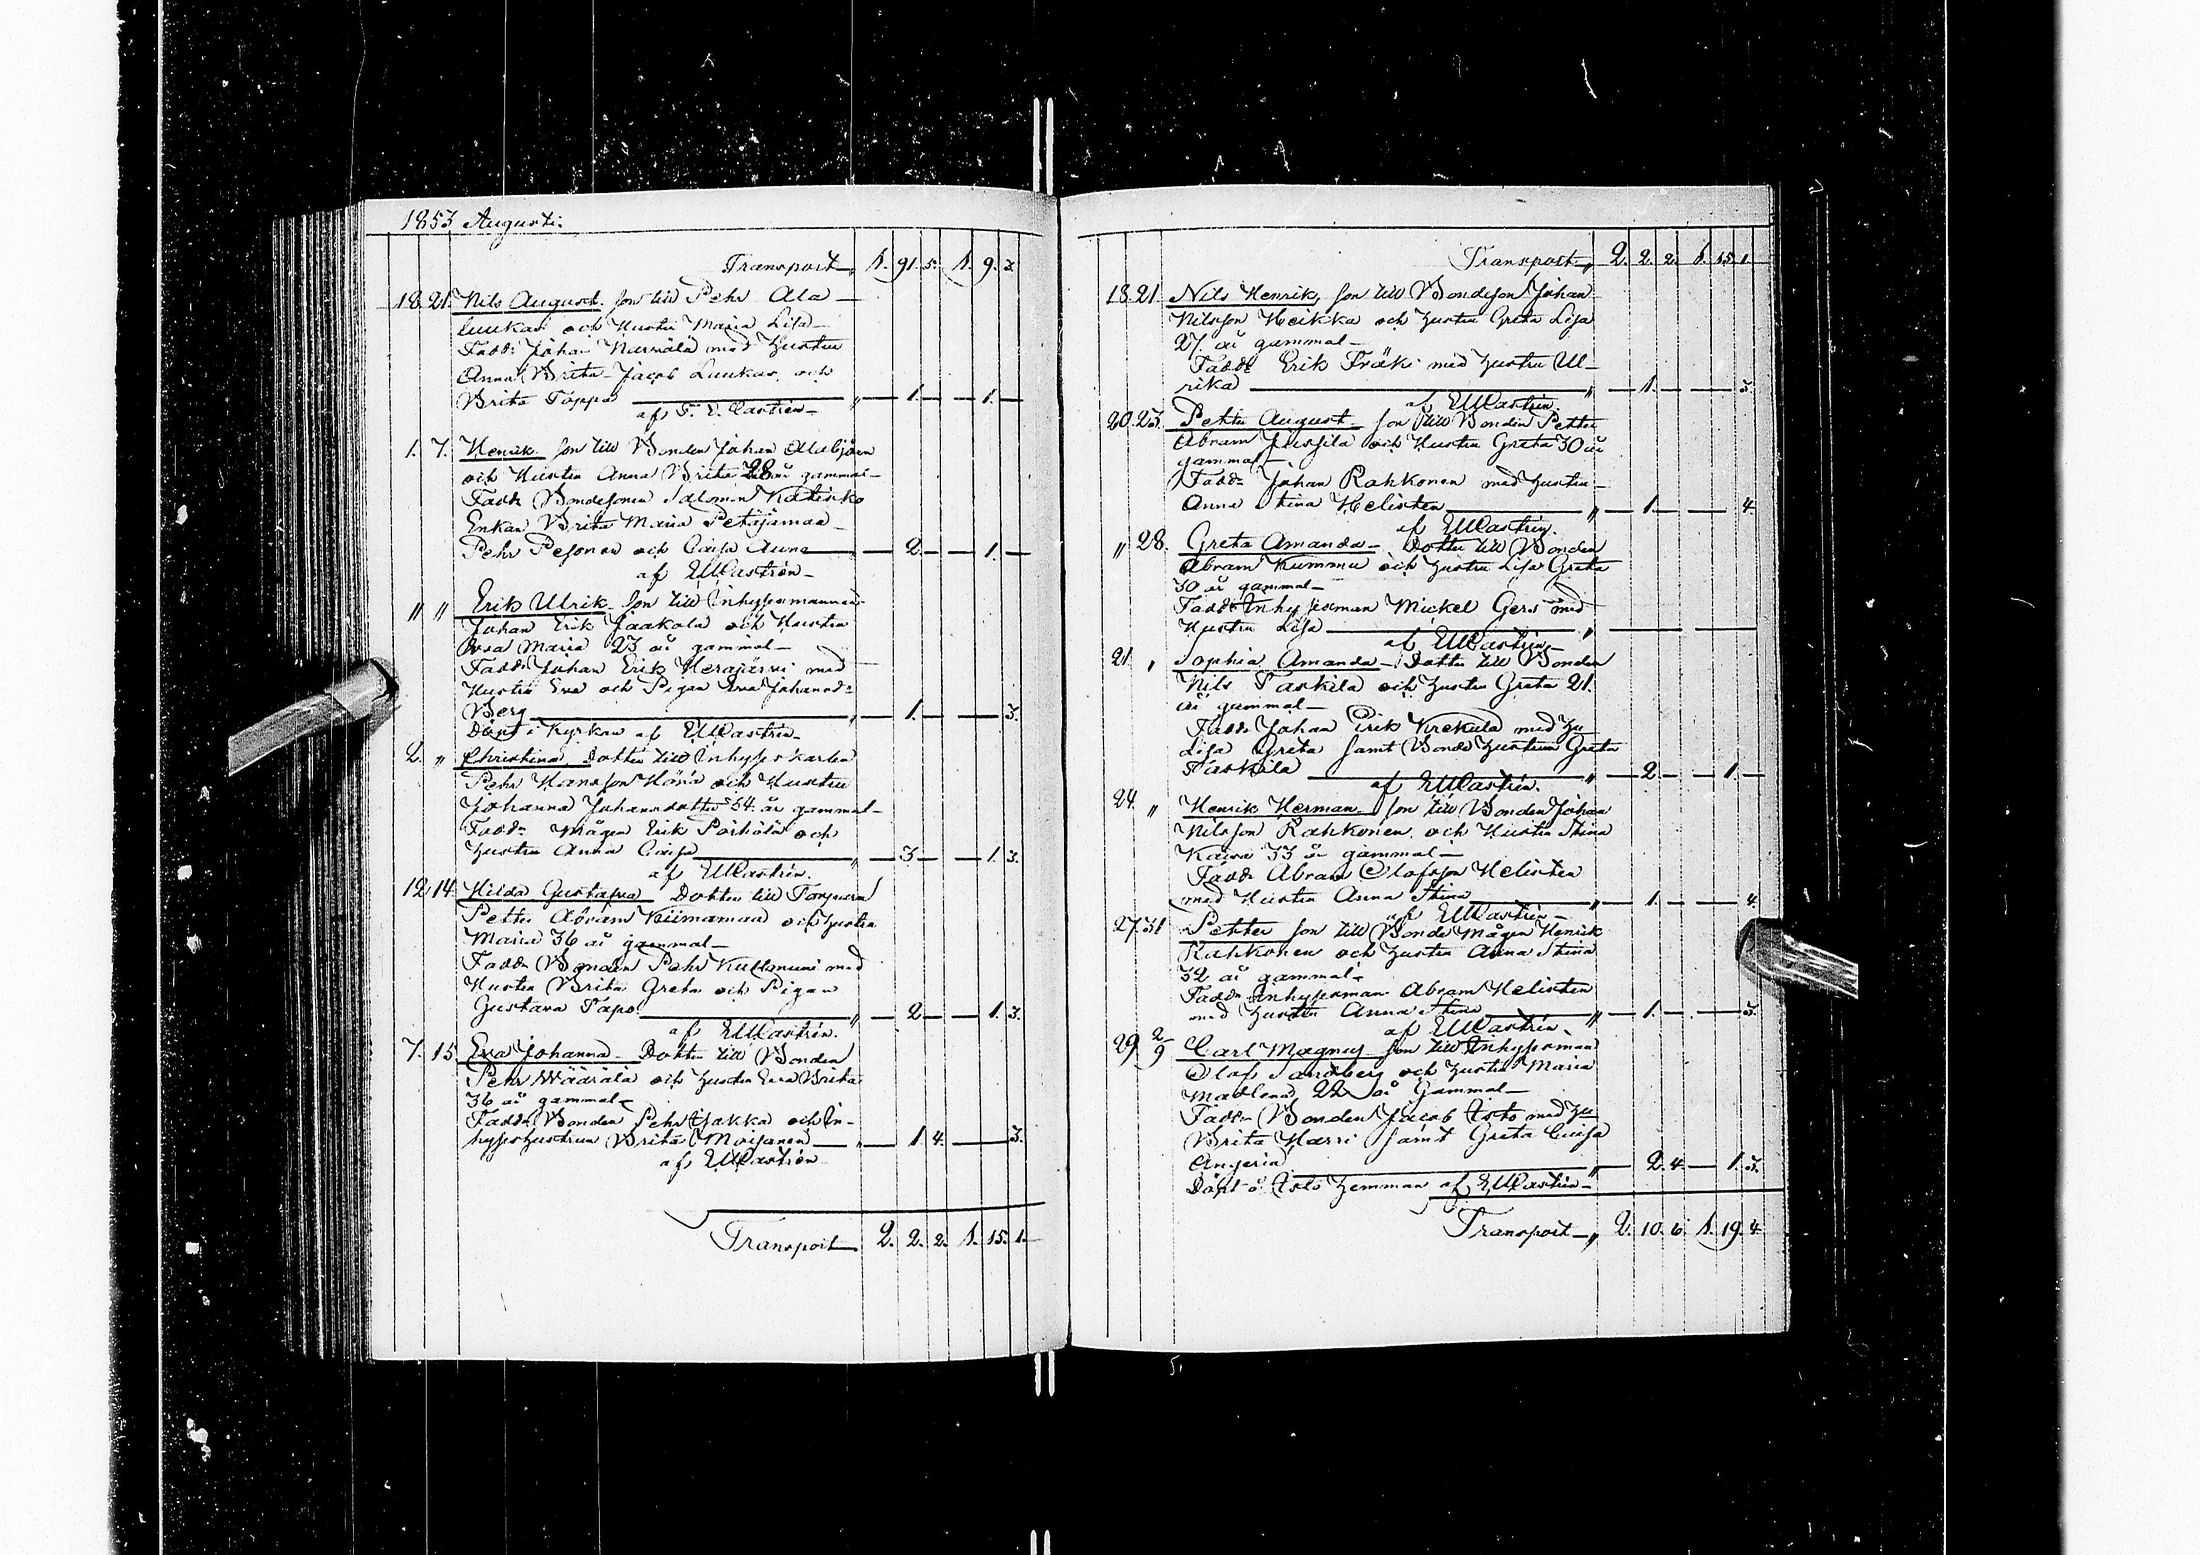 1853 Augusti.
Transport 1. 91. 5. 1. 9. 3.
18. 21. Nils August. son till Pehr Ala-
luukas och Hustru Maria Lisa
Fadd: Johan med Hustru
Anna Brita Jacob Luukas, och
Brita Tappo " 1. 1.
af F. E. Castrén
1. 7. Henrik son till Bonden Johan Alabjörn
och Hustru Anna Brita 28 år gammal
Fadd: Bondesonen Salomon
Enkan Brita Maria Petäjämaa
Pehr Pesonen och Caisa 2. 1.
af EWCastrén
" " Erik Ulrik son till Inhysesmannen
Johan Erik Jaakola och Hustru
Eva Maria 23 år gammal
Fadd: Johan Erik Herajärvi med
Hustru Eva och Pigan Eva Johansd:
Berg " 1. 3.
Döpt i Kyrkan af EWCastrén
2. " Christina Dotter till Inhyseskarlen
Pehr Hansson och Hustru
Johanna Johansdotter 34. år gammal
Fadd: mågen Erik och
Hustru Anna Caisa " 3 1. 3.
af EWCastrén.
12. 14. Hilda Gustafva Dotter till Torparen
Petter Abram Kiimamaa och Hustru
Maria 36 år gammal
Fadd: Bonden Pehr med
Hustru Brita Greta och Pigan
Gustava Tapo " 2 1. 3.
af EWCastrén.
7. 15. Eva Johanna Dotter till Bonden
Pehr och Hustru Eva Brita
36 år gammal
Fadd: Bonden Pehr och In-
hyses hustrun Brita Moisanen " 1. 4. 3.
af EWCastrén
Transport 2. 2. 2. 1. 15. 1.
Transport " 2. 2. 2. 1. 15. 1.
18. 21. Nils Henrik, son till Bondeson Johan
Nilsson Heikka och Hustru Greta Lisa
27. år gammal
Fadd: Erik Fräki med Hustru Ul-
rika " 1. 3.
af EWCastrén
20. 23. Petter August. son till Bonden Petter
Abram Jussila och Hustru Greta 30 år
gammal
Fadd: Johan Rahkonen med Hustru
Anna Stina Helisten " 1. 4.
af EWCastrén.
" 28. Greta Amanda Dotter till Bonden
Abram Kummu och Hustru Lisa Greta
30 år gammal
Fadd: Inhysesman Mickel Gers med
Hustru Lisa "
af EWCastrén
21. " Sophia Amanda Dotter till Bonden
Nils Taskila och Hustru Greta 21.
år gammal
Fadd: Johan Erik Krekula med Hu
Lisa Greta samt Bonde Hustrun Greta
Taskila " 2. 1.
af EWCastrén.
24. " Henrik Herman son till Bonden Johan
Nilsson Rahkonen och Hustru Stina
Kaisa 33 år gammal
Fadd: Abram Olofsson Helisten
med Hustru Anna Stina " 1. 4.
af EWCastrén
27. 31 Petter son till Bonde mågen Henrik
Rahkonen och Hustru Anna Stina
32 år gammal
Fadd: Inhysesman Abram Helisten
med Hustru Anna Stina " 1. 3.
af EWCastrén.
29. 2/9 Carl Magnus son till Inhysesman
Olof Sandberg och Hustru Maria
Matlena 22 år Gammal
Fadd: Bonden Jacob Isto med Hu
Brita Harri samt Greta Caisa
Angeria " 2. 4. 1. 3.
Döpt å Isto Hemman af EWCastrén
Transport " 2. 10. 6. 1. 19. 4